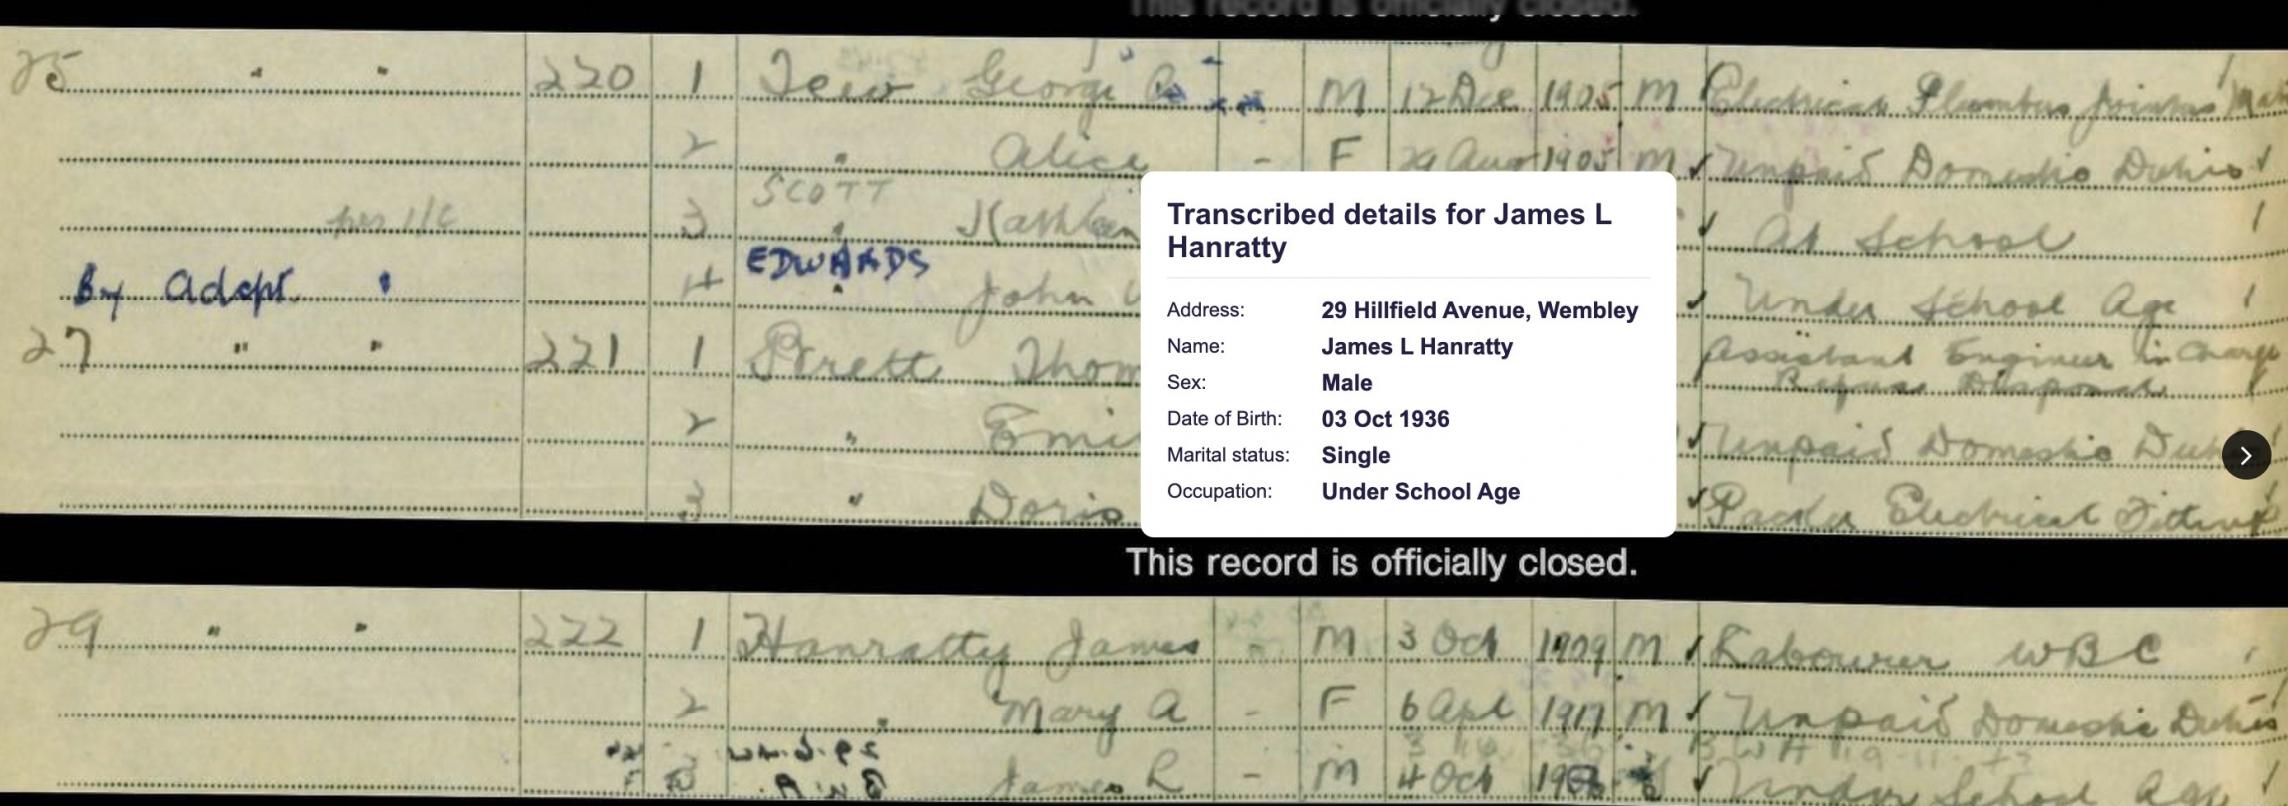 This record is officially closed.
25 " " 220 1 Tew George M 12 Dec 1905 M Electrical Plumber Jointer Mate
2 " Alice - F 29 Aug 1905 M ✓ Unpaid Domestic Duties ✓
SCOTT
per 1/C 3 " Kathleen ✓ At School
EDWARDS
By Adopt. 4 " John ✓ Under School Age
27 " " 221 1 Prett Thom Assistant Engineer in Charge
Refuse Disposal
2 " Emi ✓ Unpaid Domestic Duties
3 " Doris ✓ Packer Electrical Fittings
Transcribed details for James L
Hanratty
Address: 29 Hillfield Avenue, Wembley
Name: James L Hanratty
Sex: Male
Date of Birth: 03 Oct 1936
Marital status: Single
Occupation: Under School Age
This record is officially closed.
29 " " 222 1 Hanratty James - M 3 Oct 1909 M ✓ Labourer WBC
2 " Mary A - F 6 Apl 1917 M ✓ Unpaid Domestic Duties
3 James L - M 4 Oct ✓ Under School Age